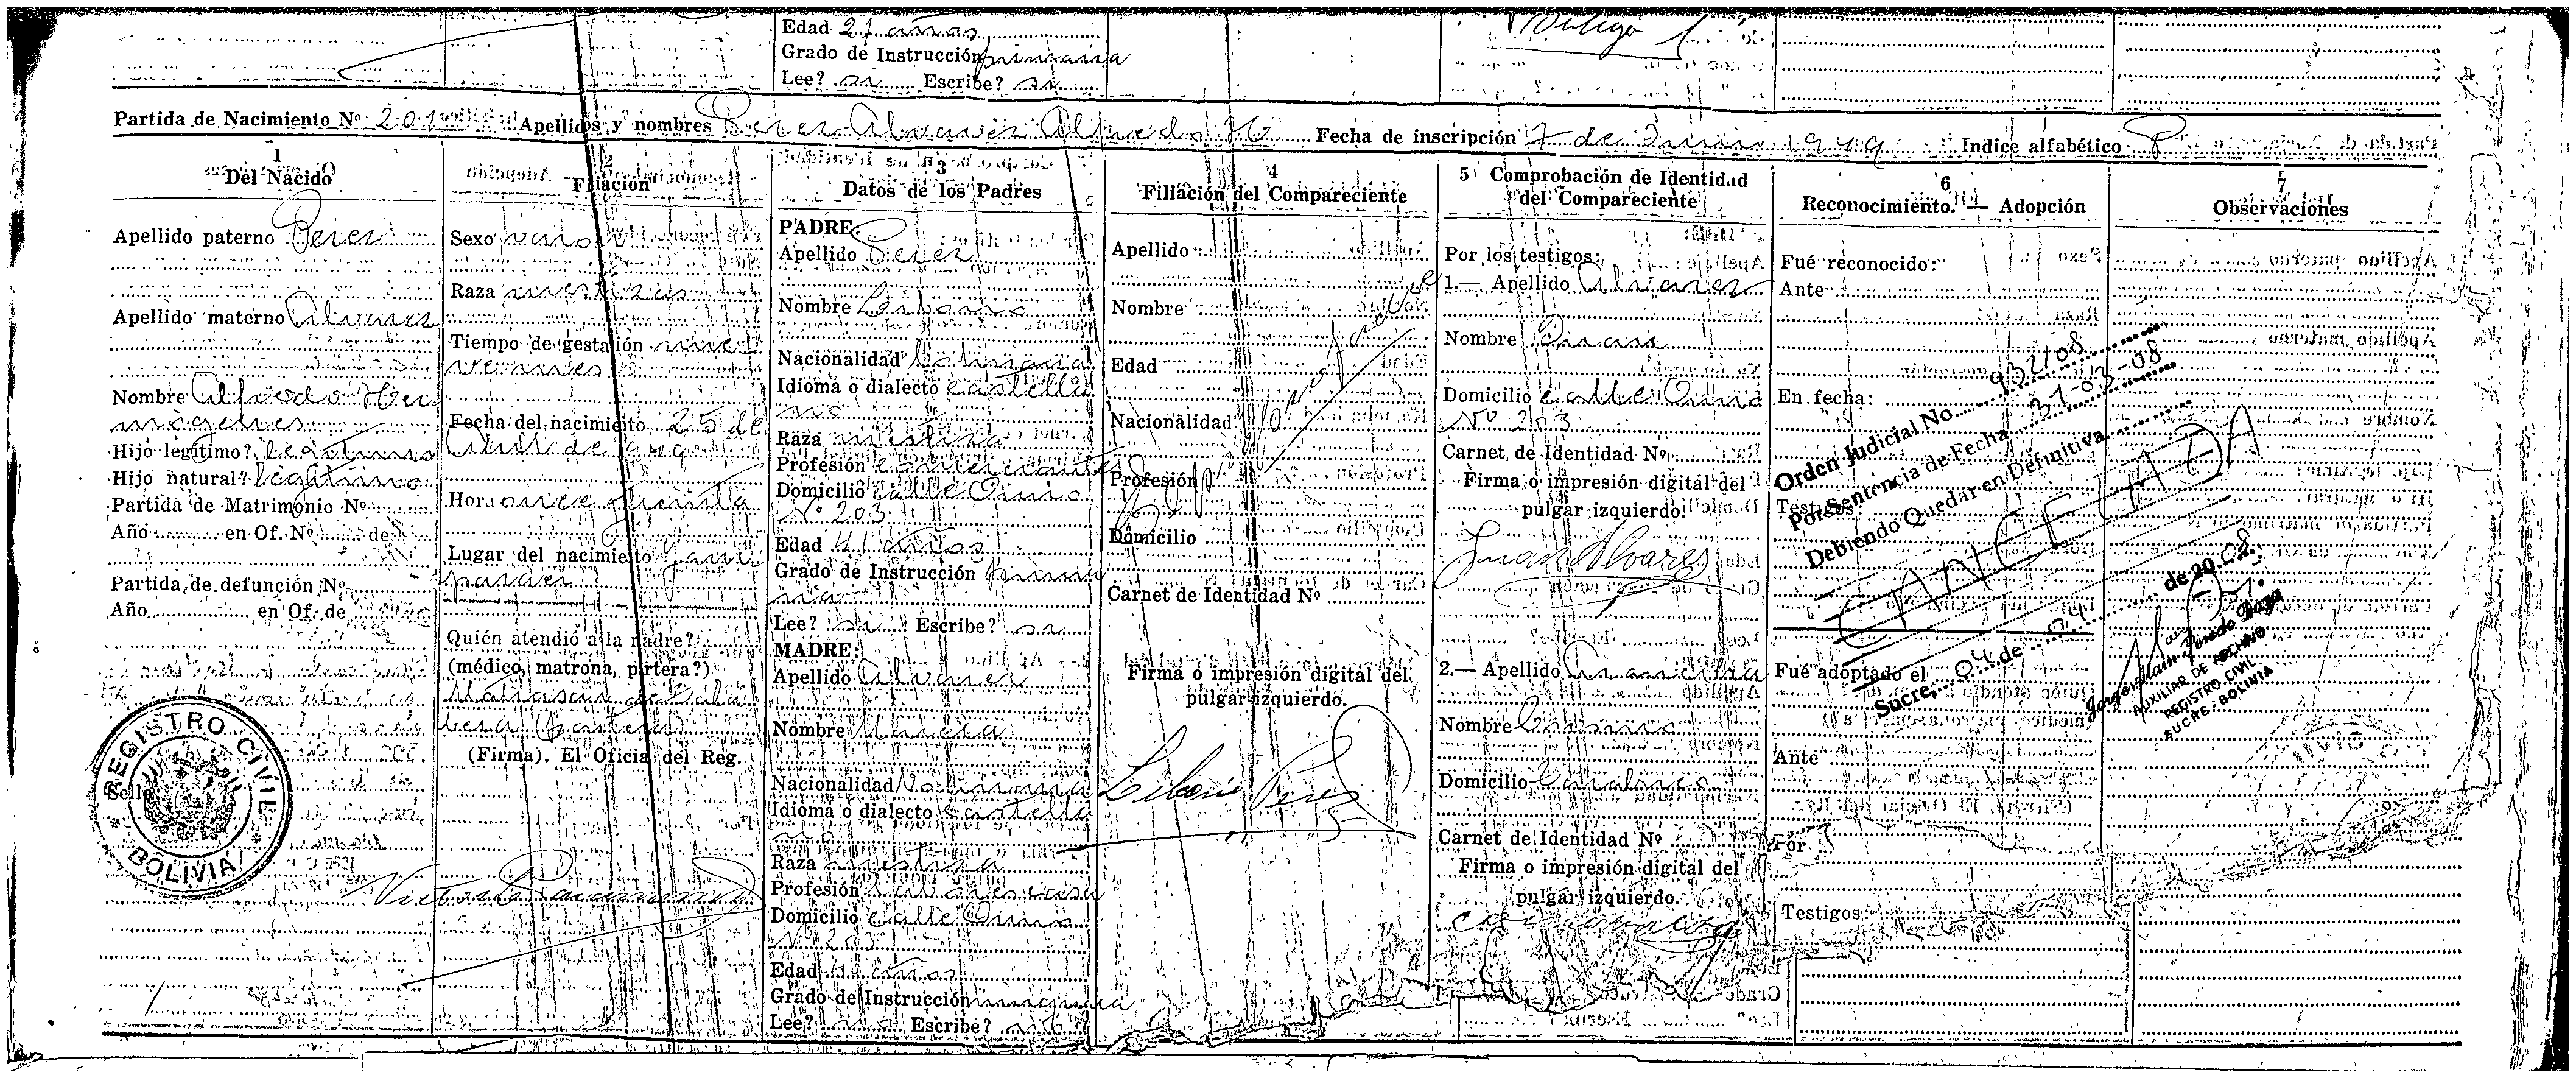 Edad 21 años
Grado de Instrucción primaria
Lee? si Escribe? si
Partida de Nacimiento Nº 201 Apellidos y nombres Perez Alvarez Alfredo H. Fecha de inscripción 7 de Junio 1949 Indice alfabético P
1
Del Nacido
Apellido paterno Perez
Apellido materno Alvarez
Nombre Alfredo Her
mogenes
Hijo legítimo? legitimo
Hijo natural? legitimo
Partida de Matrimonio Nº
Año en Of. Nº de
Partida de defunción Nº
Año en Of. de
Sello
REGISTRO CIVIL
BOLIVIA
2
Filiación
Sexo varon
Raza mestizas
Tiempo de gestación nue
ve meses
Fecha del nacimiento 25 de
Abril de 1949
Hora once
Lugar del nacimiento Yam
paraez
Quién atendió a la madre?
(médico, matrona, partera?)
(Firma). El Oficial del Reg.
3
Datos de los Padres
PADRE:
Apellido Perez
Nombre Liborio
Nacionalidad boliviana
Idioma o dialecto castella
no
Raza mestiza
Profesión comerciante
Domicilio calle Oruro
Nº 203
Edad 41 años
Grado de Instrucción prima
ria
Lee? si Escribe? si
MADRE:
Apellido Alvarez
Nombre Maria
Nacionalidad boliviana
Idioma o dialecto castella
no
Raza mestiza
Profesión labores casa
Domicilio calle Oruro
Nº 203
Edad años
Grado de Instrucción ninguna
Lee? no Escribe? no
4
Filiación del Compareciente
Apellido
Nombre
Edad
Nacionalidad
Profesión
Domicilio
Carnet de Identidad Nº
Firma o impresión digital del
pulgar izquierdo.
Liborio Perez
5 Comprobación de Identidad
del Compareciente
Por los testigos:
1.— Apellido Alvarez
Nombre Juan
Domicilio calle Oruro
Nº 203
Carnet de Identidad Nº
Firma o impresión digital del
pulgar izquierdo.
Juan Alvares
2.— Apellido
Nombre
Domicilio
Carnet de Identidad Nº
Firma o impresión digital del
pulgar izquierdo.
6
Reconocimiento. — Adopción
Fué reconocido:
Ante
En fecha:
Testigos
Fué adoptado el
Ante
Por
Testigos
7
Observaciones
Orden Judicial No. 932/08
Por Sentencia de Fecha 31-03-08
Debiendo Quedar en Definitiva
CANCELADA
Sucre, 04 de 04 de 2008
AUXILIAR DE ARCHIVO
REGISTRO CIVIL
SUCRE - BOLIVIA